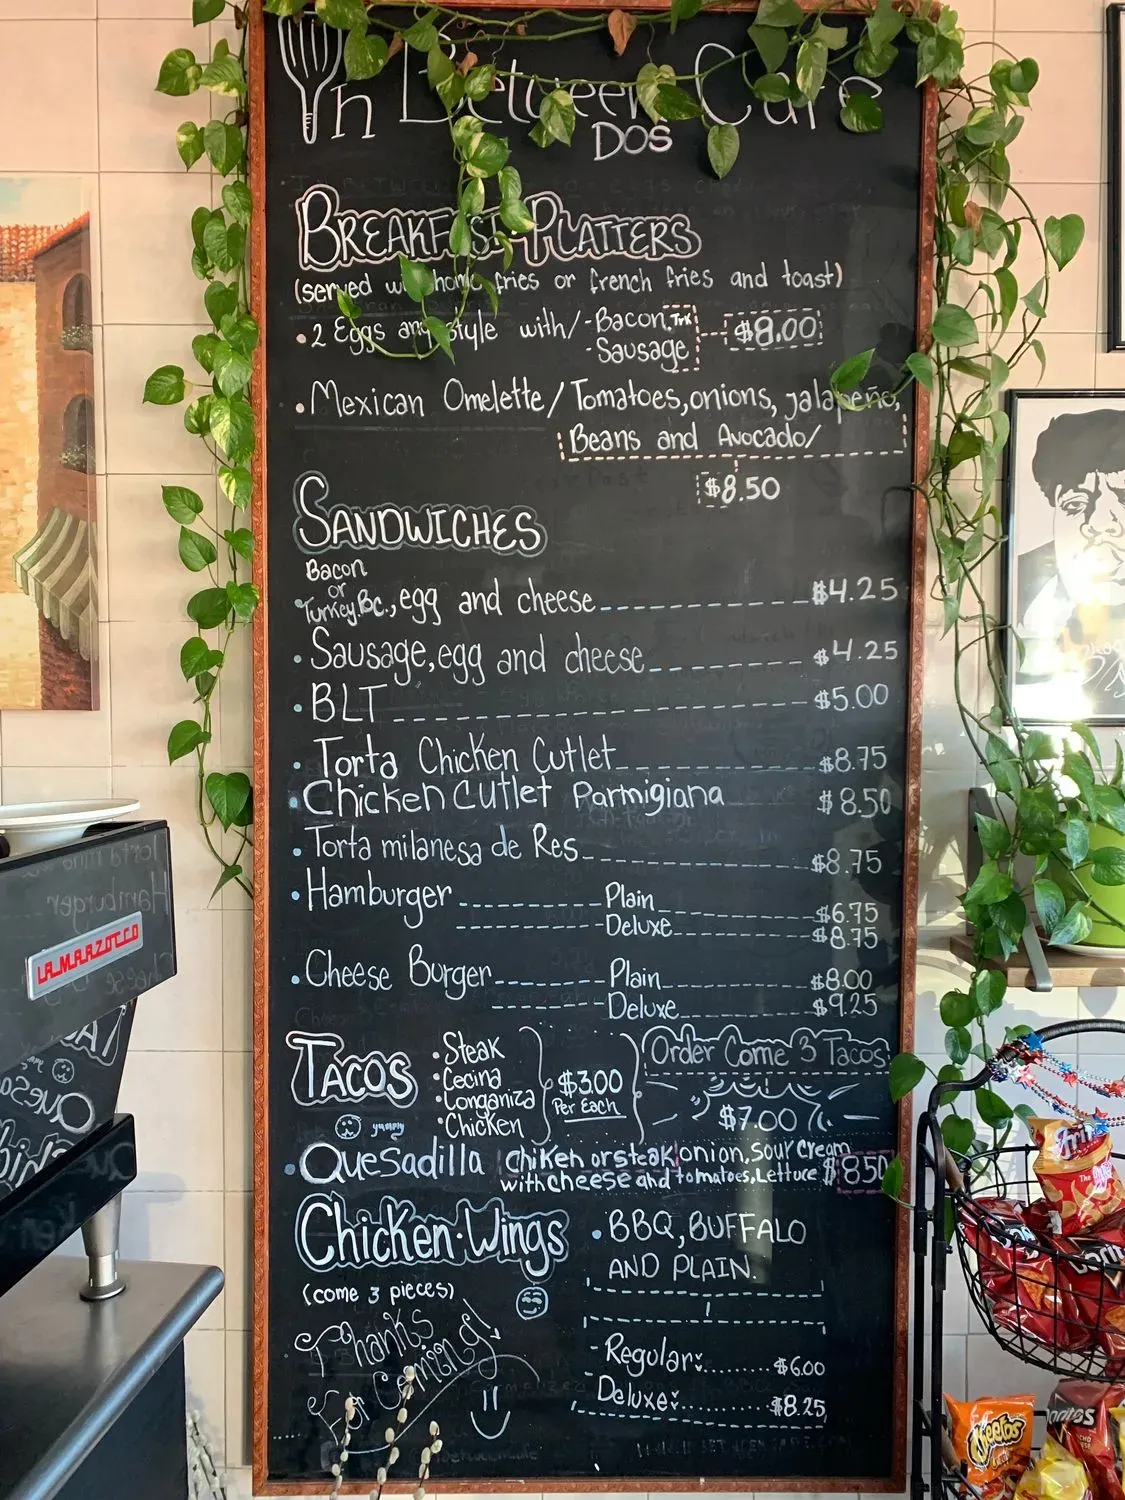 In Between Cafe
DOS
BREAKFAST PLATTERS
(served w/ home fries or french fries and toast)
• 2 Eggs any style with/ - Bacon, Trk $8.00
- Sausage
• Mexican Omelette / Tomatoes, onions, jalapeño,
Beans and Avocado/
$8.50
SANDWICHES
Bacon
or
• Turkey.Bc., egg and cheese $4.25
• Sausage, egg and cheese $4.25
• BLT $5.00
• Torta Chicken Cutlet $8.75
• Chicken Cutlet Parmigiana $8.50
• Torta milanesa de Res $8.75
• Hamburger Plain $6.75
Deluxe $8.75
• Cheese Burger Plain $8.00
Deluxe $9.25
TACOS
• Steak
• Cecina
• Longaniza
• Chicken
$3.00
Per Each
Order Come 3 Tacos
$7.00
yummy
• Quesadilla chiken or steak, onion, sour cream
with cheese and tomatoes, Lettuce $8.50
Chicken Wings
(come 3 pieces)
• BBQ, BUFFALO
AND PLAIN.
- Regular: ........ $6.00
- Deluxe: ........... $8.25
Thanks
For Coming!
LA MARZOCCO
Cheetos